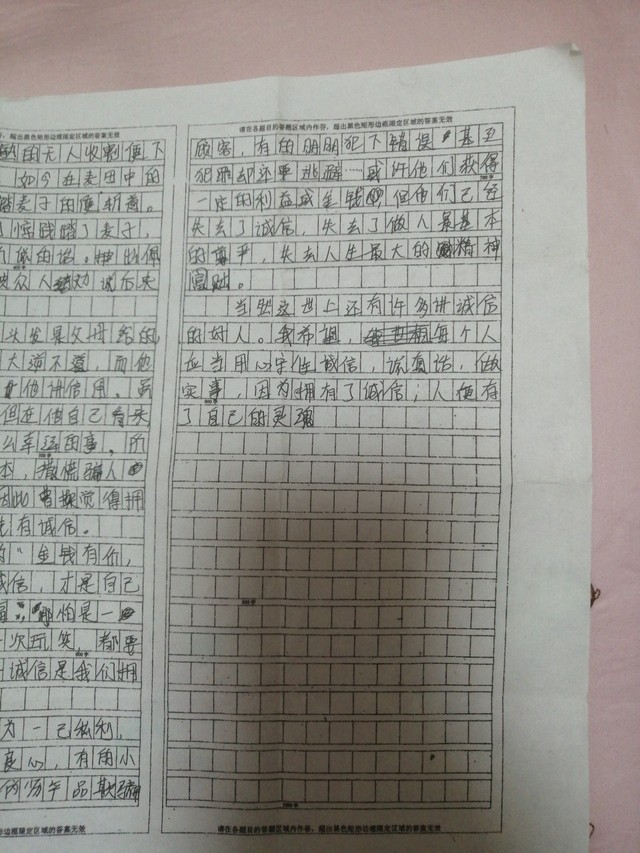 超出黑色矩形边框限定区域的答案无效
的无人收割便下
如今在麦田中的
踏麦子的便折意。
惊践踏了麦子,
的话。
众人劝诫后决
头发是父母给的
大逆不道,而他
他讲信用。虽
但在他自己看来
公幸运的事。所
本,撒慌骗人
因此曹操觉得拥
先有诚信。
的“金钱有价,
诚信,才是自己
哪怕是一
一次玩笑,都要
诚信是我们拥
为一己私利,
良心,有的小
边框限定区域的答案无效
请在各题目的答题区域内作答,超出黑色矩形边框限定区域的答案无效
顾客,有的明明犯下错误,甚至
犯罪却还要逃避……或许他们获得
一定的利益或金钱,但他们已经
失去了诚信,失去了做人最基本
的尊严,失去人生最大的精神
当然这世上还有许多讲诚信
的好人。我希望,每个人
应当用心守住诚信,说真话,做
实事,因为拥有了诚信;人便有
了自己的灵魂
请在各题目的答题区域内作答,超出黑色矩形边框限定区域的答案无效